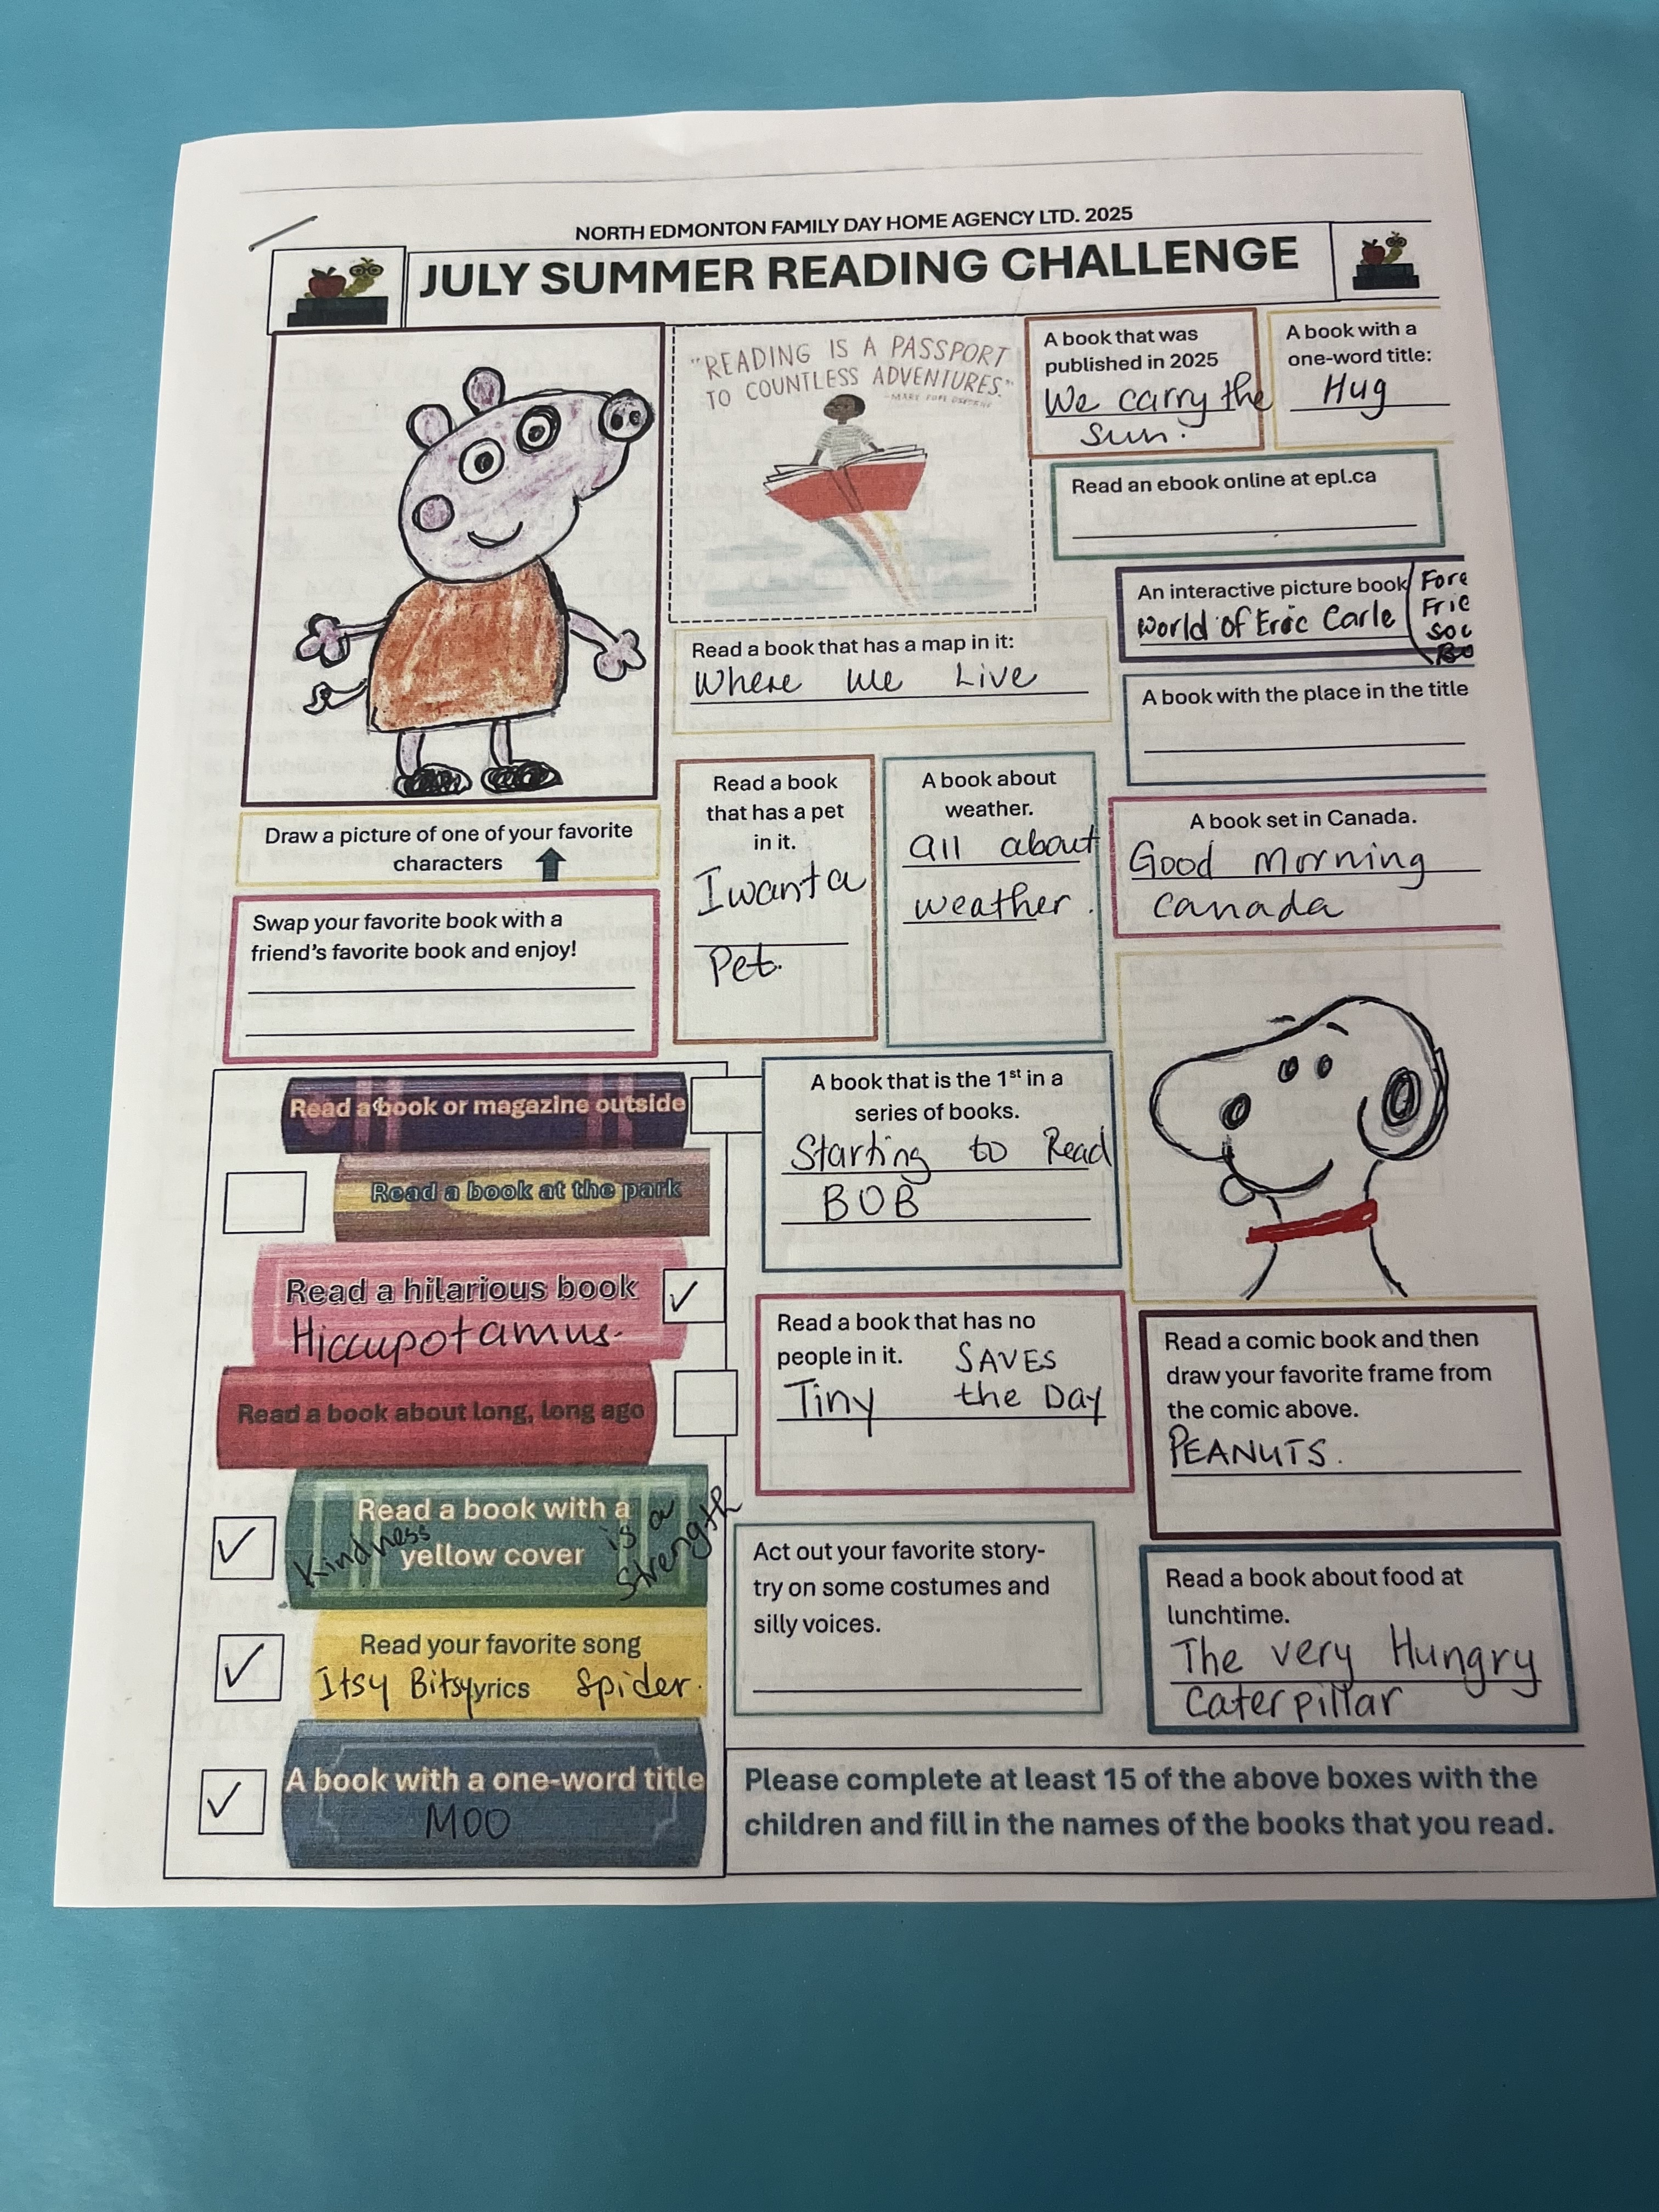 NORTH EDMONTON FAMILY DAY HOME AGENCY LTD. 2025
JULY SUMMER READING CHALLENGE
"READING IS A PASSPORT
TO COUNTLESS ADVENTURES."
-MARY POPE OSBORNE
A book that was
published in 2025
We carry the
sun.
A book with a
one-word title:
Hug
Read an ebook online at epl.ca
An interactive picture book
World of Eric Carle
Fore
Frie
Soc
Read a book that has a map in it:
Where we Live
A book with the place in the title
Draw a picture of one of your favorite
characters
Swap your favorite book with a
friend's favorite book and enjoy!
Read a book
that has a pet
in it.
I want a
Pet.
A book about
weather.
all about
weather.
A book set in Canada.
Good Morning
Canada
Read a book or magazine outside
Read a book at the park
Read a hilarious book
Hiccupotamus.
Read a book about long, long ago
Read a book with a
yellow cover
Kindness is a
Strength
Read your favorite song
Itsy Bitsy yrics Spider.
A book with a one-word title
MOO
A book that is the 1st in a
series of books.
Starting to Read
BOB
Read a book that has no
people in it.
SAVES
Tiny the Day
Read a comic book and then
draw your favorite frame from
the comic above.
PEANUTS.
Act out your favorite story-
try on some costumes and
silly voices.
Read a book about food at
lunchtime.
The very Hungry
Caterpillar
Please complete at least 15 of the above boxes with the
children and fill in the names of the books that you read.